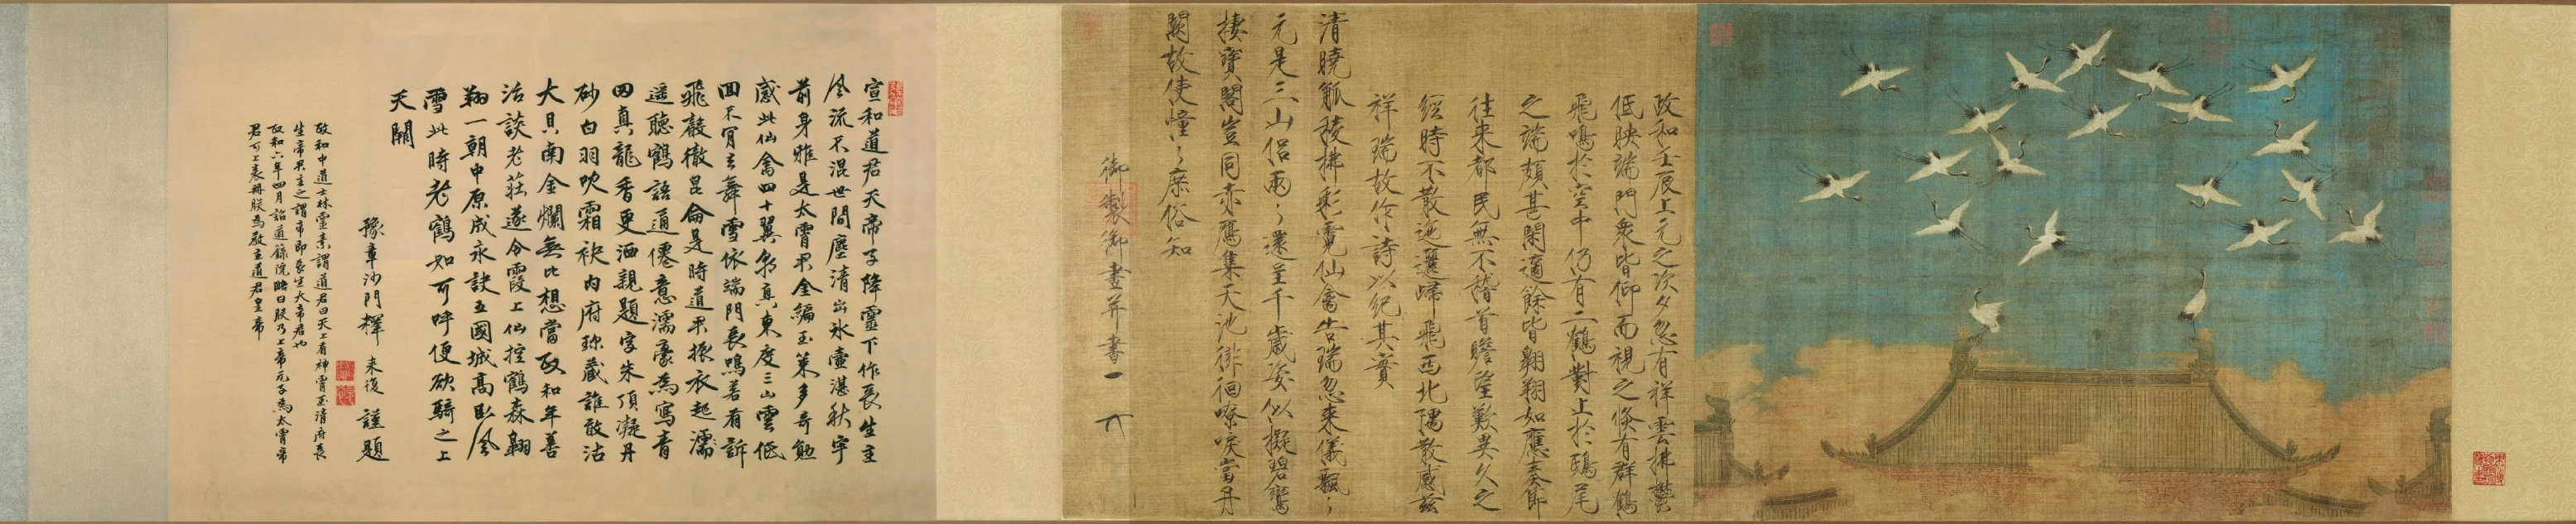 政和壬辰上元之次夕忽有祥雲拂鬱
低映端門衆皆仰而視之倏有群鶴
飛鳴於空中仍有二鶴對止於鴟尾
之端頗甚閑適餘皆翱翔如應奏節
往来都民無不稽首瞻望歎異久之
經時不散迤邐歸飛西北隅散感茲
祥瑞故作詩以紀其實
清曉觚稜拂彩霓仙禽告瑞忽來儀飄〻
元是三山侶兩〻還呈千歲姿似擬碧鸞
棲寶閣豈同赤鴈集天池徘徊嘹唳當丹
闕故使憧〻庶俗知
御製御畫并書
宣和道君天帝子降靈下作長生主
風流不混世間塵清出氷壺湛秋宇
前身雅是太霄君金編玉策多奇勉
感此仙禽四十翼朝真東度三山雲低
回不肎去舞雪依端門長鳴若有訴
飛聲徹崑侖是時道君振衣起濡
遥聽鶴語通僊意濡豪為寫青
田真龍香更洒親題字朱頂凝丹
砂白羽吹霜袂内府珎藏誰敢沽
大貝南金爛無比想當政和年善
活談老莊遂令霞上仙控鶴森翱
翔一朝中原成永訣五國城高臥風
雪此時老鶴如可呼便欲騎之上
天關
豫章沙門釋 来復 謹題
政和中道士林靈素謂道君曰天上有神霄玉清府長
生帝君主之謂帝即長生大帝君也
政和六年四月詔道錄院略曰朕乃上帝元子為太霄帝
君可上表冊朕為教主道君皇帝